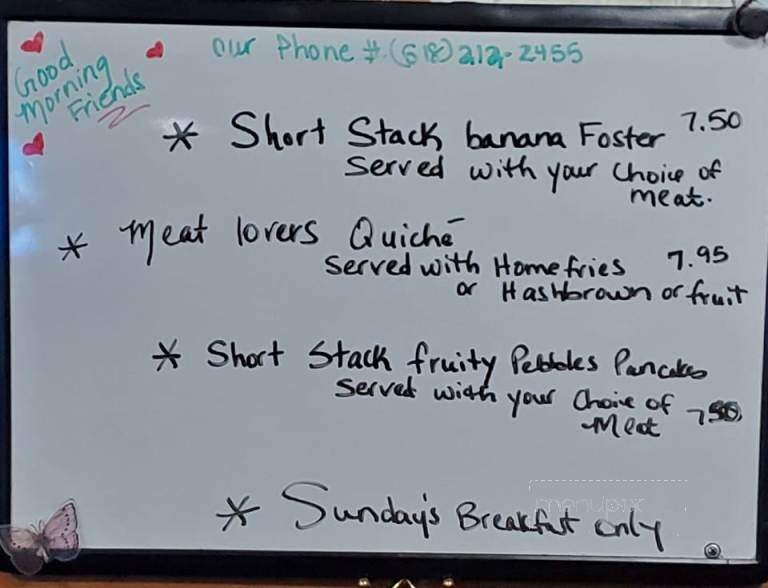 Good
Morning
Friends
Our Phone # (618) 212-2455
* Short Stack banana Foster 7.50
Served with your Choice of
meat.
* Meat lovers Quiché
Served with Homefries 7.95
or Hashbrown or fruit
* Short Stack fruity Pebbles Pancakes
Served with your Choice of 7.50
Meat
* Sunday's Breakfast only
menupix